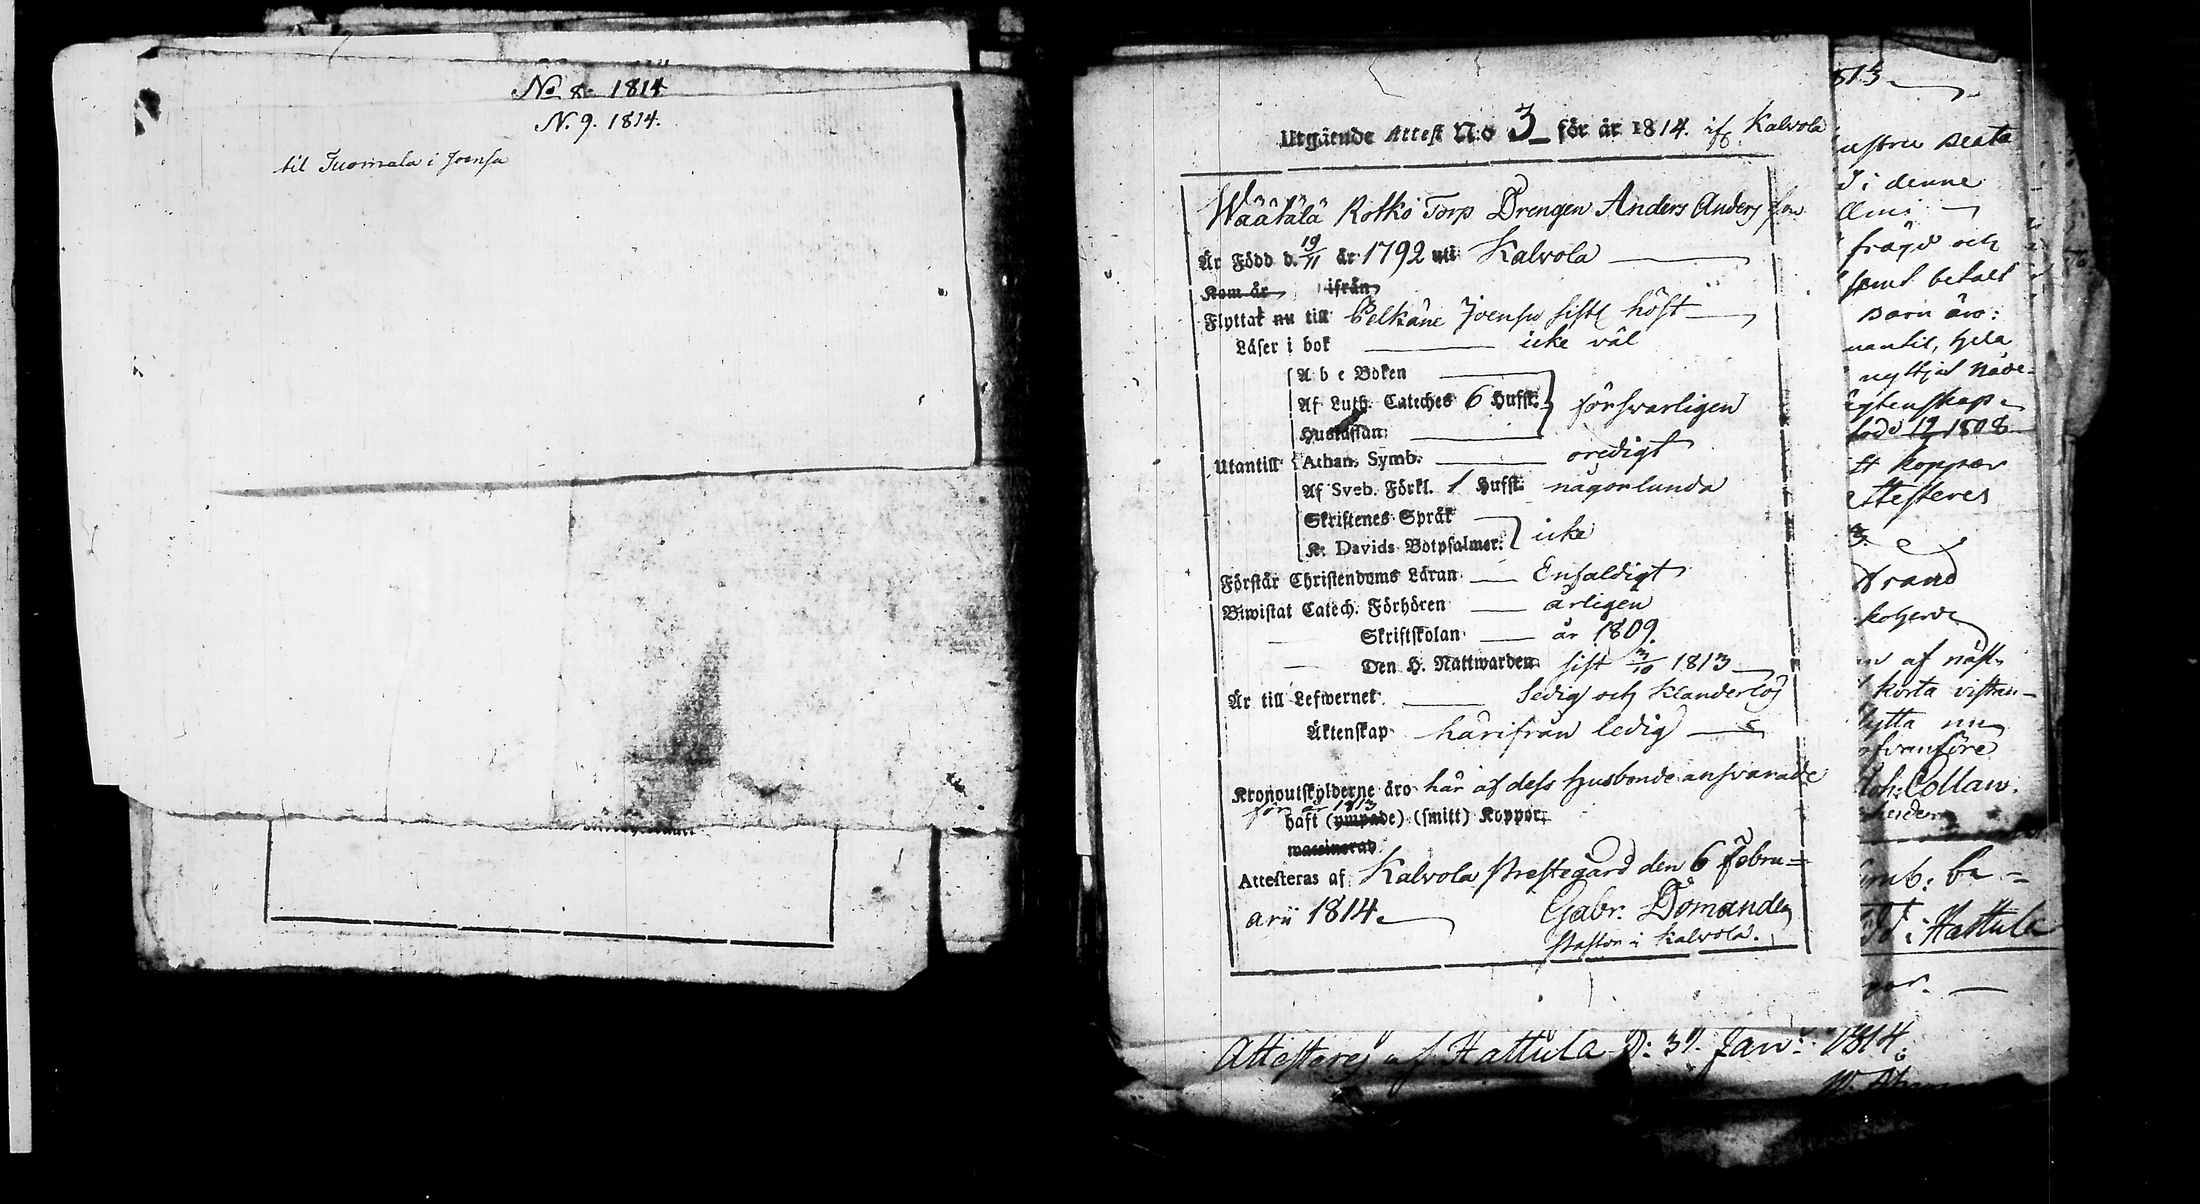 No 8. 1814
N. 9. 1814.
til Tuomala i Joensu
Utgående Attest N:o 3 för år 1814. if. Kalvola
Wäätälä Rotko Torp Drengen Anders Andersson
Är Född d. 19/11 år 1792 uti Kalvola
Kom år ifrån
Flyttat nu till Pelkäne Joensu sistl höst
Läser i bok icke väl
A b c Boken
Af Luth. Cateches 6 Hufst. försvarligen
Hustaflan
Utantill Athan. Symb. oredigt
Af Sveb. Förkl. 1 Hufst. någorlunda
Skriftenes Språk
K. Davids Botpsalmer. icke
Förstår Christendoms Läran Enfaldigt
Biwistat Catech. Förhören årligen
Skriftskolan år 1809.
Den H. Nattwarden sist 3/10 1813
Är till Lefwernet ledig och klanderlös
Äktenskap härifrån ledig
Kronoutskylderne äro här af dess husbonde ansvarade
för år 1813
haft (ympade) (smitt) Koppor.
waccinerad
Attesteras af Kalvola Prestegård den 6 Febru=
arii 1814.
Gabr. Domander
Pastor i Kalvola.
813
Beata
i denne
frägd och
samt betalt
Barn äro:
nantil, hela
nyttjat Nåde-
ägtenskap
född 19 1808
koppor
attesteras
Strand
af näst-
korta vistan-
flytta nu
Joh: Collan.
Symb: be-
i Hattula
Attesteres af Hattula D: 31 Janu: 1814.